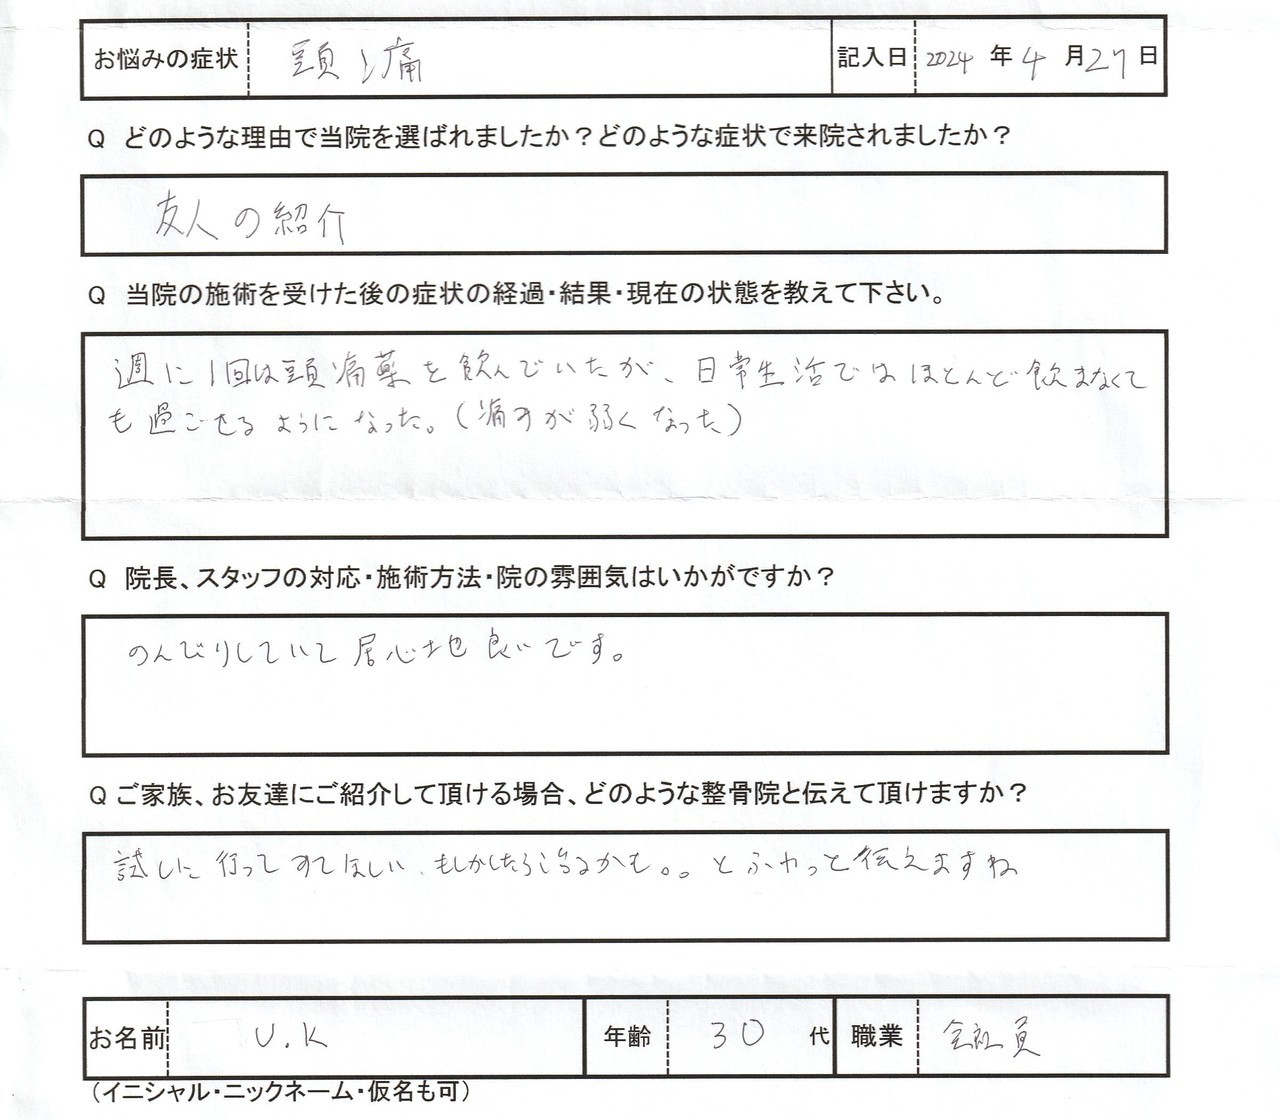 お悩みの症状 頭痛 記入日 2024 年 4 月 27 日
Q どのような理由で当院を選ばれましたか？どのような症状で来院されましたか？
友人の紹介
Q 当院の施術を受けた後の症状の経過・結果・現在の状態を教えて下さい。
週に1回は頭痛薬を飲んでいたが、日常生活ではほとんど飲まなくて
も過ごせるようになった。（痛みが弱くなった）
Q 院長、スタッフの対応・施術方法・院の雰囲気はいかがですか？
のんびりしていて居心地良いです。
Q ご家族、お友達にご紹介して頂ける場合、どのような整骨院と伝えて頂けますか？
試しに行ってみてほしい、もしかしたら治るかも。。とふわっと伝えますね
お名前 U.K 年齢 30 代 職業 会社員
（イニシャル・ニックネーム・仮名も可）